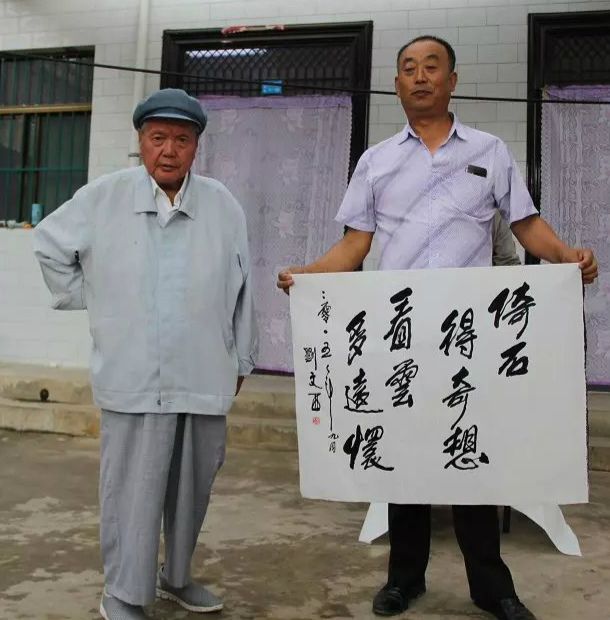 倚石
得奇想
看雲
多遠懷
二零一五年九月
劉文西